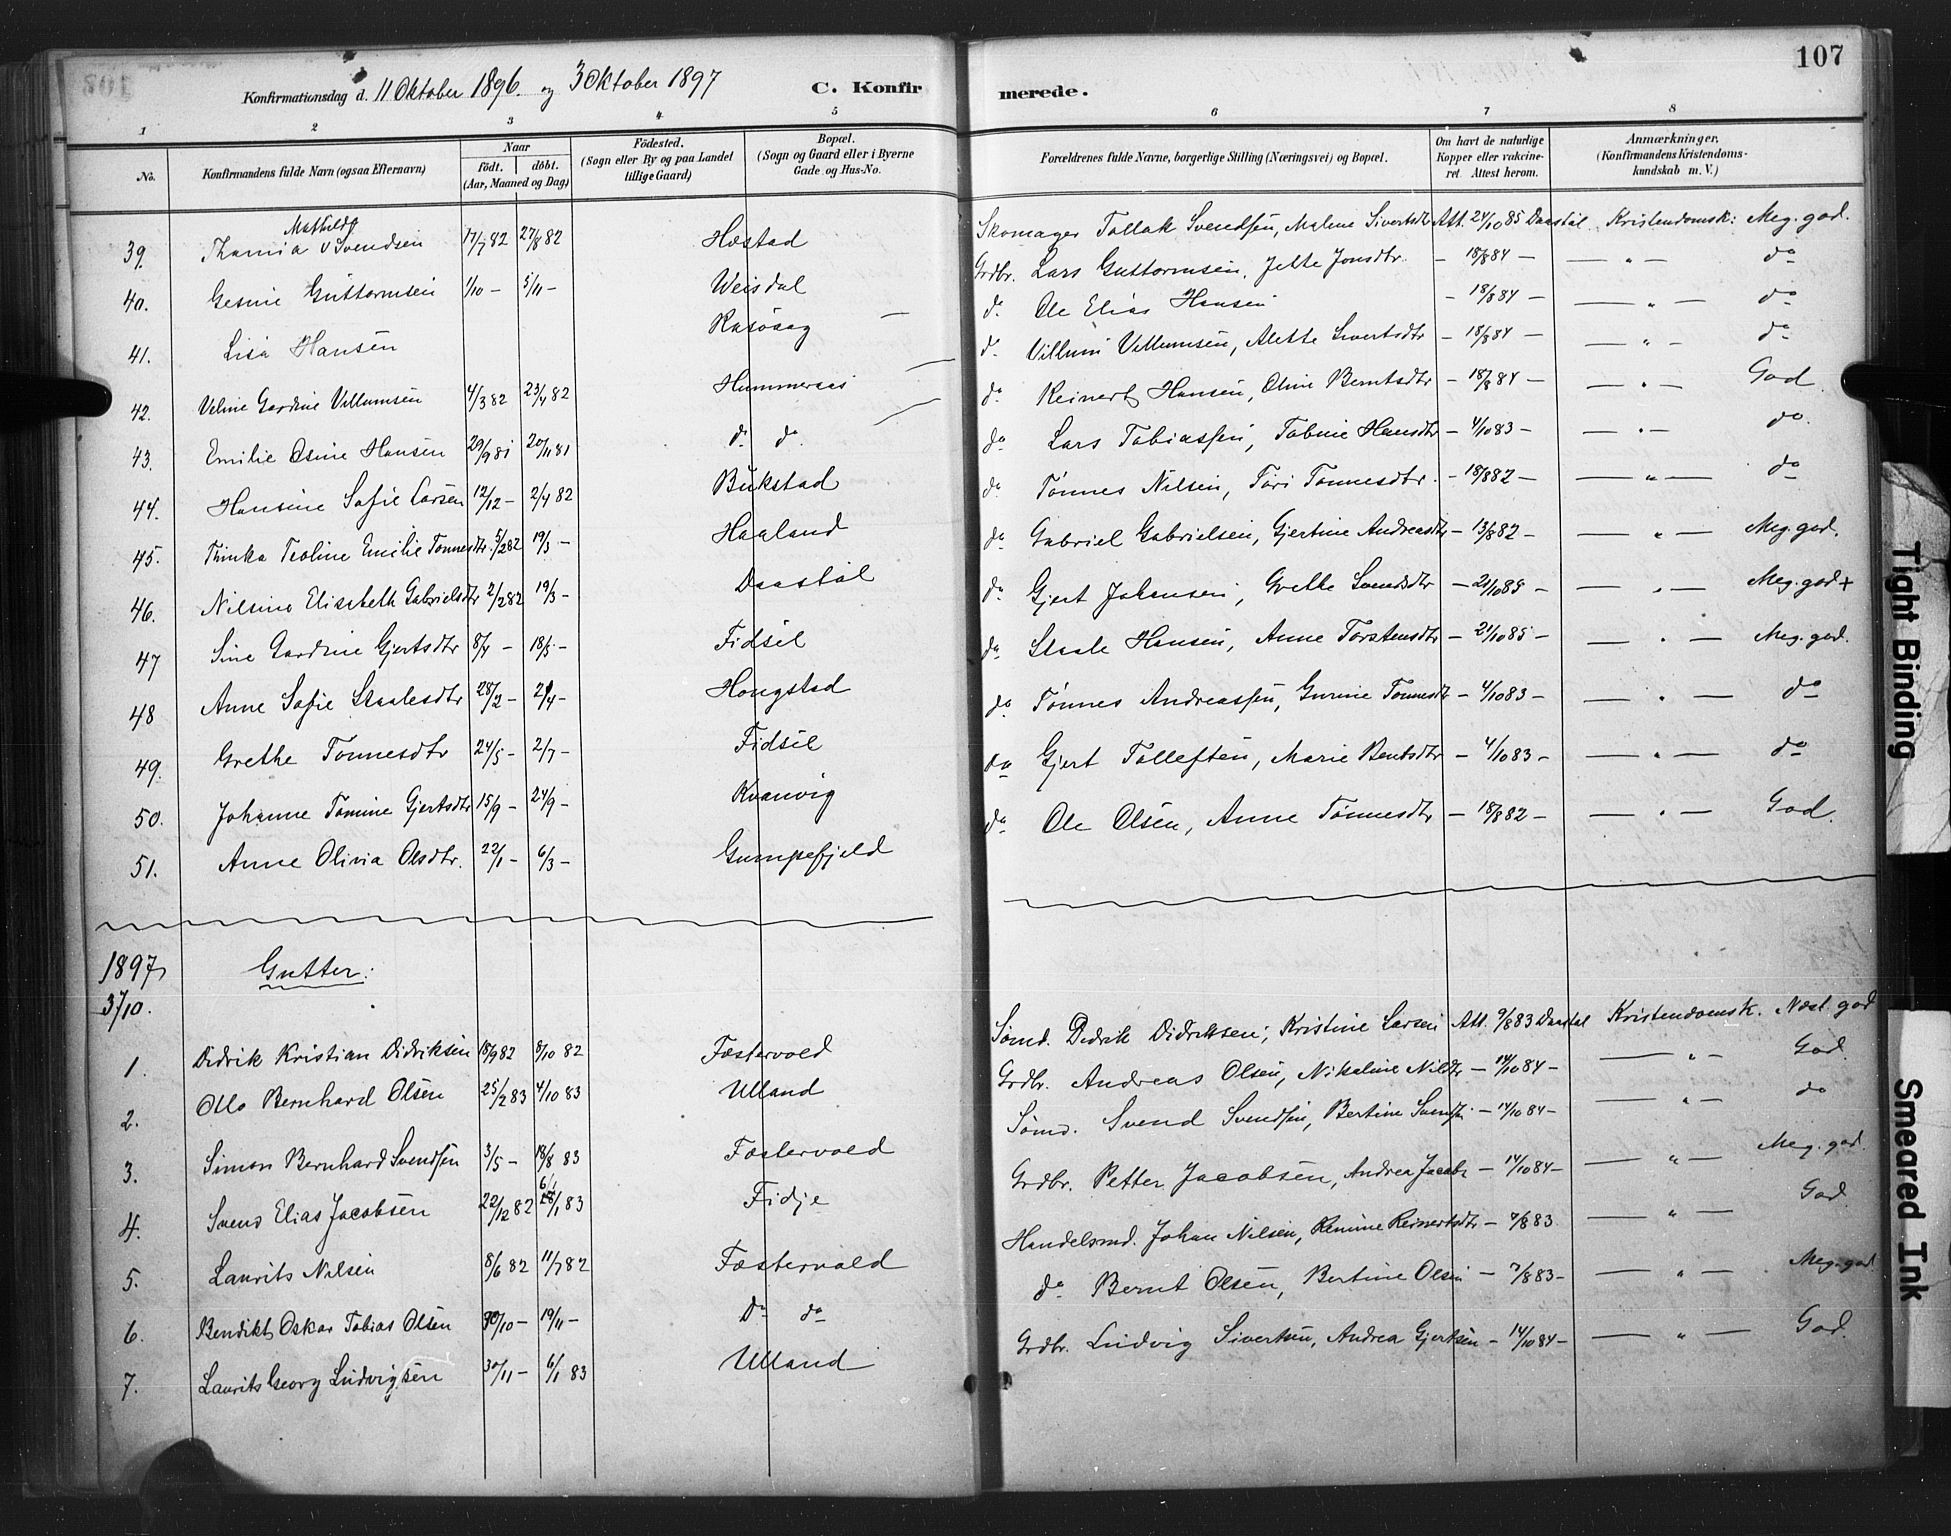 107
Konfirmationsdag d. 11 Oktober 1896. og 3 Oktober 1897 C. Konfirmerede.
1 2 3 4 5 6 7 8
No. Konfirmandens fulde Navn (ogsaa Efternavn) Naar født. døbt. (Aar, Maaned og Dag) Fødested. (Sogn eller By og paa Landet tillige Gaard) Bopæl. (Sogn og Gaard eller i Byerne Gade og Hus-No. Forældrenes fulde Navne, borgerlige Stilling (Næringsvei) og Bopæl. Om havt de naturlige Kopper eller vakcineret. Attest herom. Anmærkninger. (Konfirmandens Kristendomskundskab m. V.)
Mathilde
39. Svendsen 17/7 82 27/8 82 Hæstad Skomager Tallak Svendsen, Malene Sivertsdtr Att. 24/10 85 Daastøl Kristendomsk: Meg. god.
40. Gesine Guttormsen 1/10 - 5/11 - Weisdal Grdbr. Lars Guttormsen, Jette Jonsdtr. - 18/8 84 - — " — do
41. Lisa Hansen Rasöaag — d. Ole Elias Hansen - 18/8 84 - — " — do
42. Veline Gardine Villumsen 4/3 82 23/4 82 Hummeraas d. Villum Villumsen, Alette Sivertsdtr - 18/8 84 - — " — do
43. Emilie Osine Hansen 29/9 81 20/11 81 do do. do Reinert Hansen, Oline Berntsdtr - 18/8 84 - — " — God
44. Hansine Sofie Larsen 12/12 - 2/4 82 Bukstad do Lars Tobiassen, Tobine Hansdtr - 4/10 83 - — " — do.
45. Thinka Teoline Emilie Tønnesdtr. 5/2 82 19/3 - Haaland do Tønnes Nilsen, Tori Tønnesdtr. - 18/8 82 - — " — do
46. Nilsine Elisabeth Gabrielsdtr 2/2 82 19/3 - Daastøl do Gabriel Gabrielsen, Gjertine Andreasdtr - 13/8 82 - — " — Meg. god.
47 Sine Gardine Gjertsdtr 8/4 - 18/5 - Fidsel do Gjert Johansen, Grethe Svendsdtr - 21/10 85 - — " — Meg. god +
48 Anne Sofie Staalesdtr 28/2 - 2/4 - Hougstad do Staale Hansen, Anne Torstensdtr - 21/10 85 - — " — Meg. god.
49. Grethe Tønnesdtr 24/5 - 2/7 - Fidsel do Tønnes Andreassen, Gurine Tønnesdtr - 4/10 83 - — " — do
50. Johanne Tomine Gjertsdtr 15/9 - 24/9 - Kvanvig do Gjert Tollefsen, Marie Bentsdtr - 4/10 83 - — " — do
51. Anne Olivia Olsdtr. 22/1 - 6/3 - Gumpefjeld do Ole Olsen, Anne Tønnesdtr - 18/8 82 - — " — God.
1897 Gutter:
3/10.
1. Didrik Kristian Didriksen 18/9 82 8/10 82 Fæstervold Sømd. Didrik Didriksen, Kristine Larsen Att. 9/8 83 Daastøl Kristendomsk. Næst. god
2. Otto Bernhard Olsen 25/2 83 4/10 83 Ulland Grdbr. Andreas Olsen, Nikoline Nilsdtr - 14/10 84 - — " — God.
3. Simon Bernhard Svendsen 3/5 - 18/8 83 Fæstervold Sømd. Svend Svendsen, Bertine Svendsn - 14/10 84 - — " — do
4. Svend Elias Jacobsen 22/12 82 6/1 83 Fidje Grdbr. Petter Jacobsen, Andrea Jacobs - 14/10 84 - — " — Meg. god.
5. Laurits Nilsen 8/6 82 11/7 82 Fæstervold Handelsmd. Johan Nilsen, Remine Reinertsdtr - 7/8 83 — " — God
6. Bendikt Oskar Tobias Olsen 30/10 - 19/11 - Do do do Bernt Olsen, Bertine Olsen - 7/8 83 - — " — Meg. god
7. Laurits Georg Ludvigsen 30/11 - 6/1 83 Ulland Grdbr. Ludvig Sivertsen, Andrea Gjertsen - 14/10 84 - — " — God.
Tight Binding
Smeared Ink